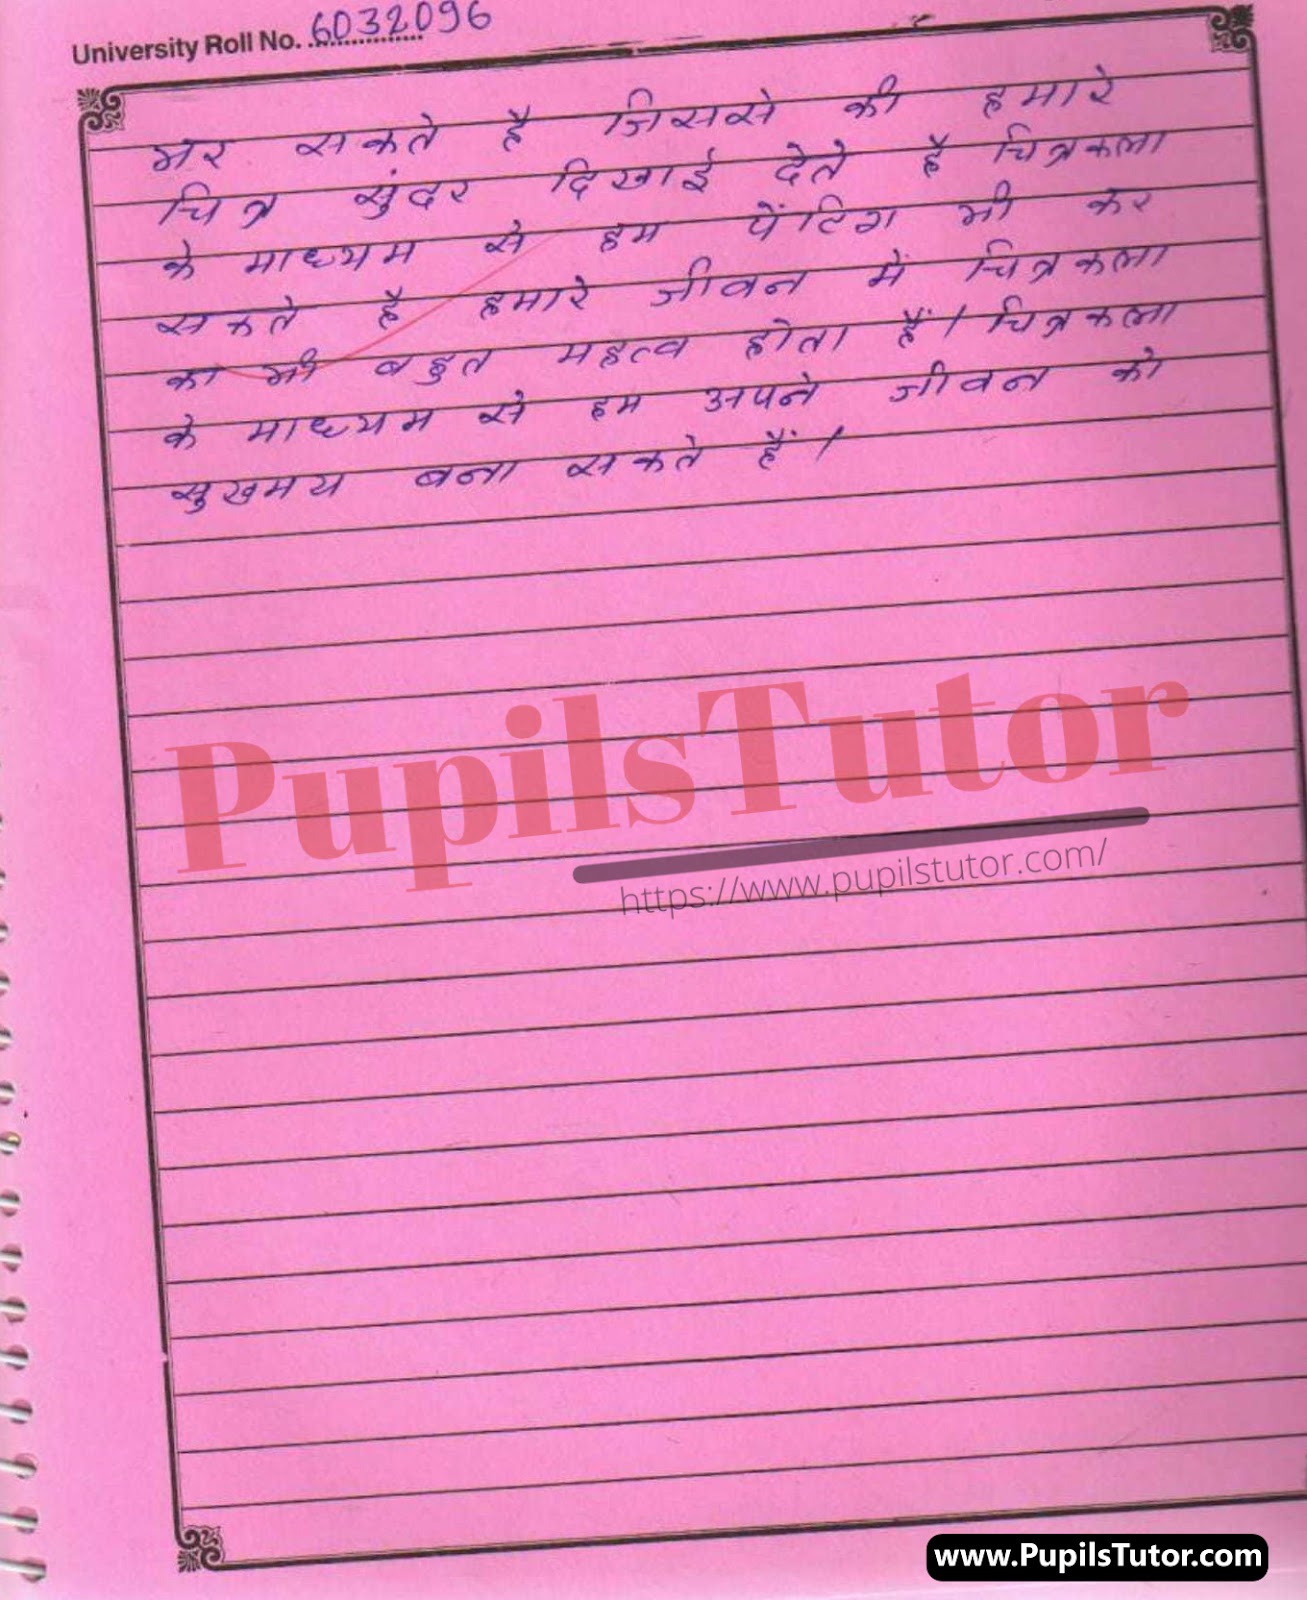 University Roll No. 6032096
भर सकते है जिससे की हमारे
चित्र सुंदर दिखाई देते है चित्रकला
के माध्यम से हम पेंटिग भी कर
सकते है हमारे जीवन में चित्रकला
का भी बहुत महत्व होता हैं। चित्रकला
के माध्यम से हम अपने जीवन को
सुखमय बना सकते हैं।
PupilsTutor
https://www.pupilstutor.com/
www.PupilsTutor.com